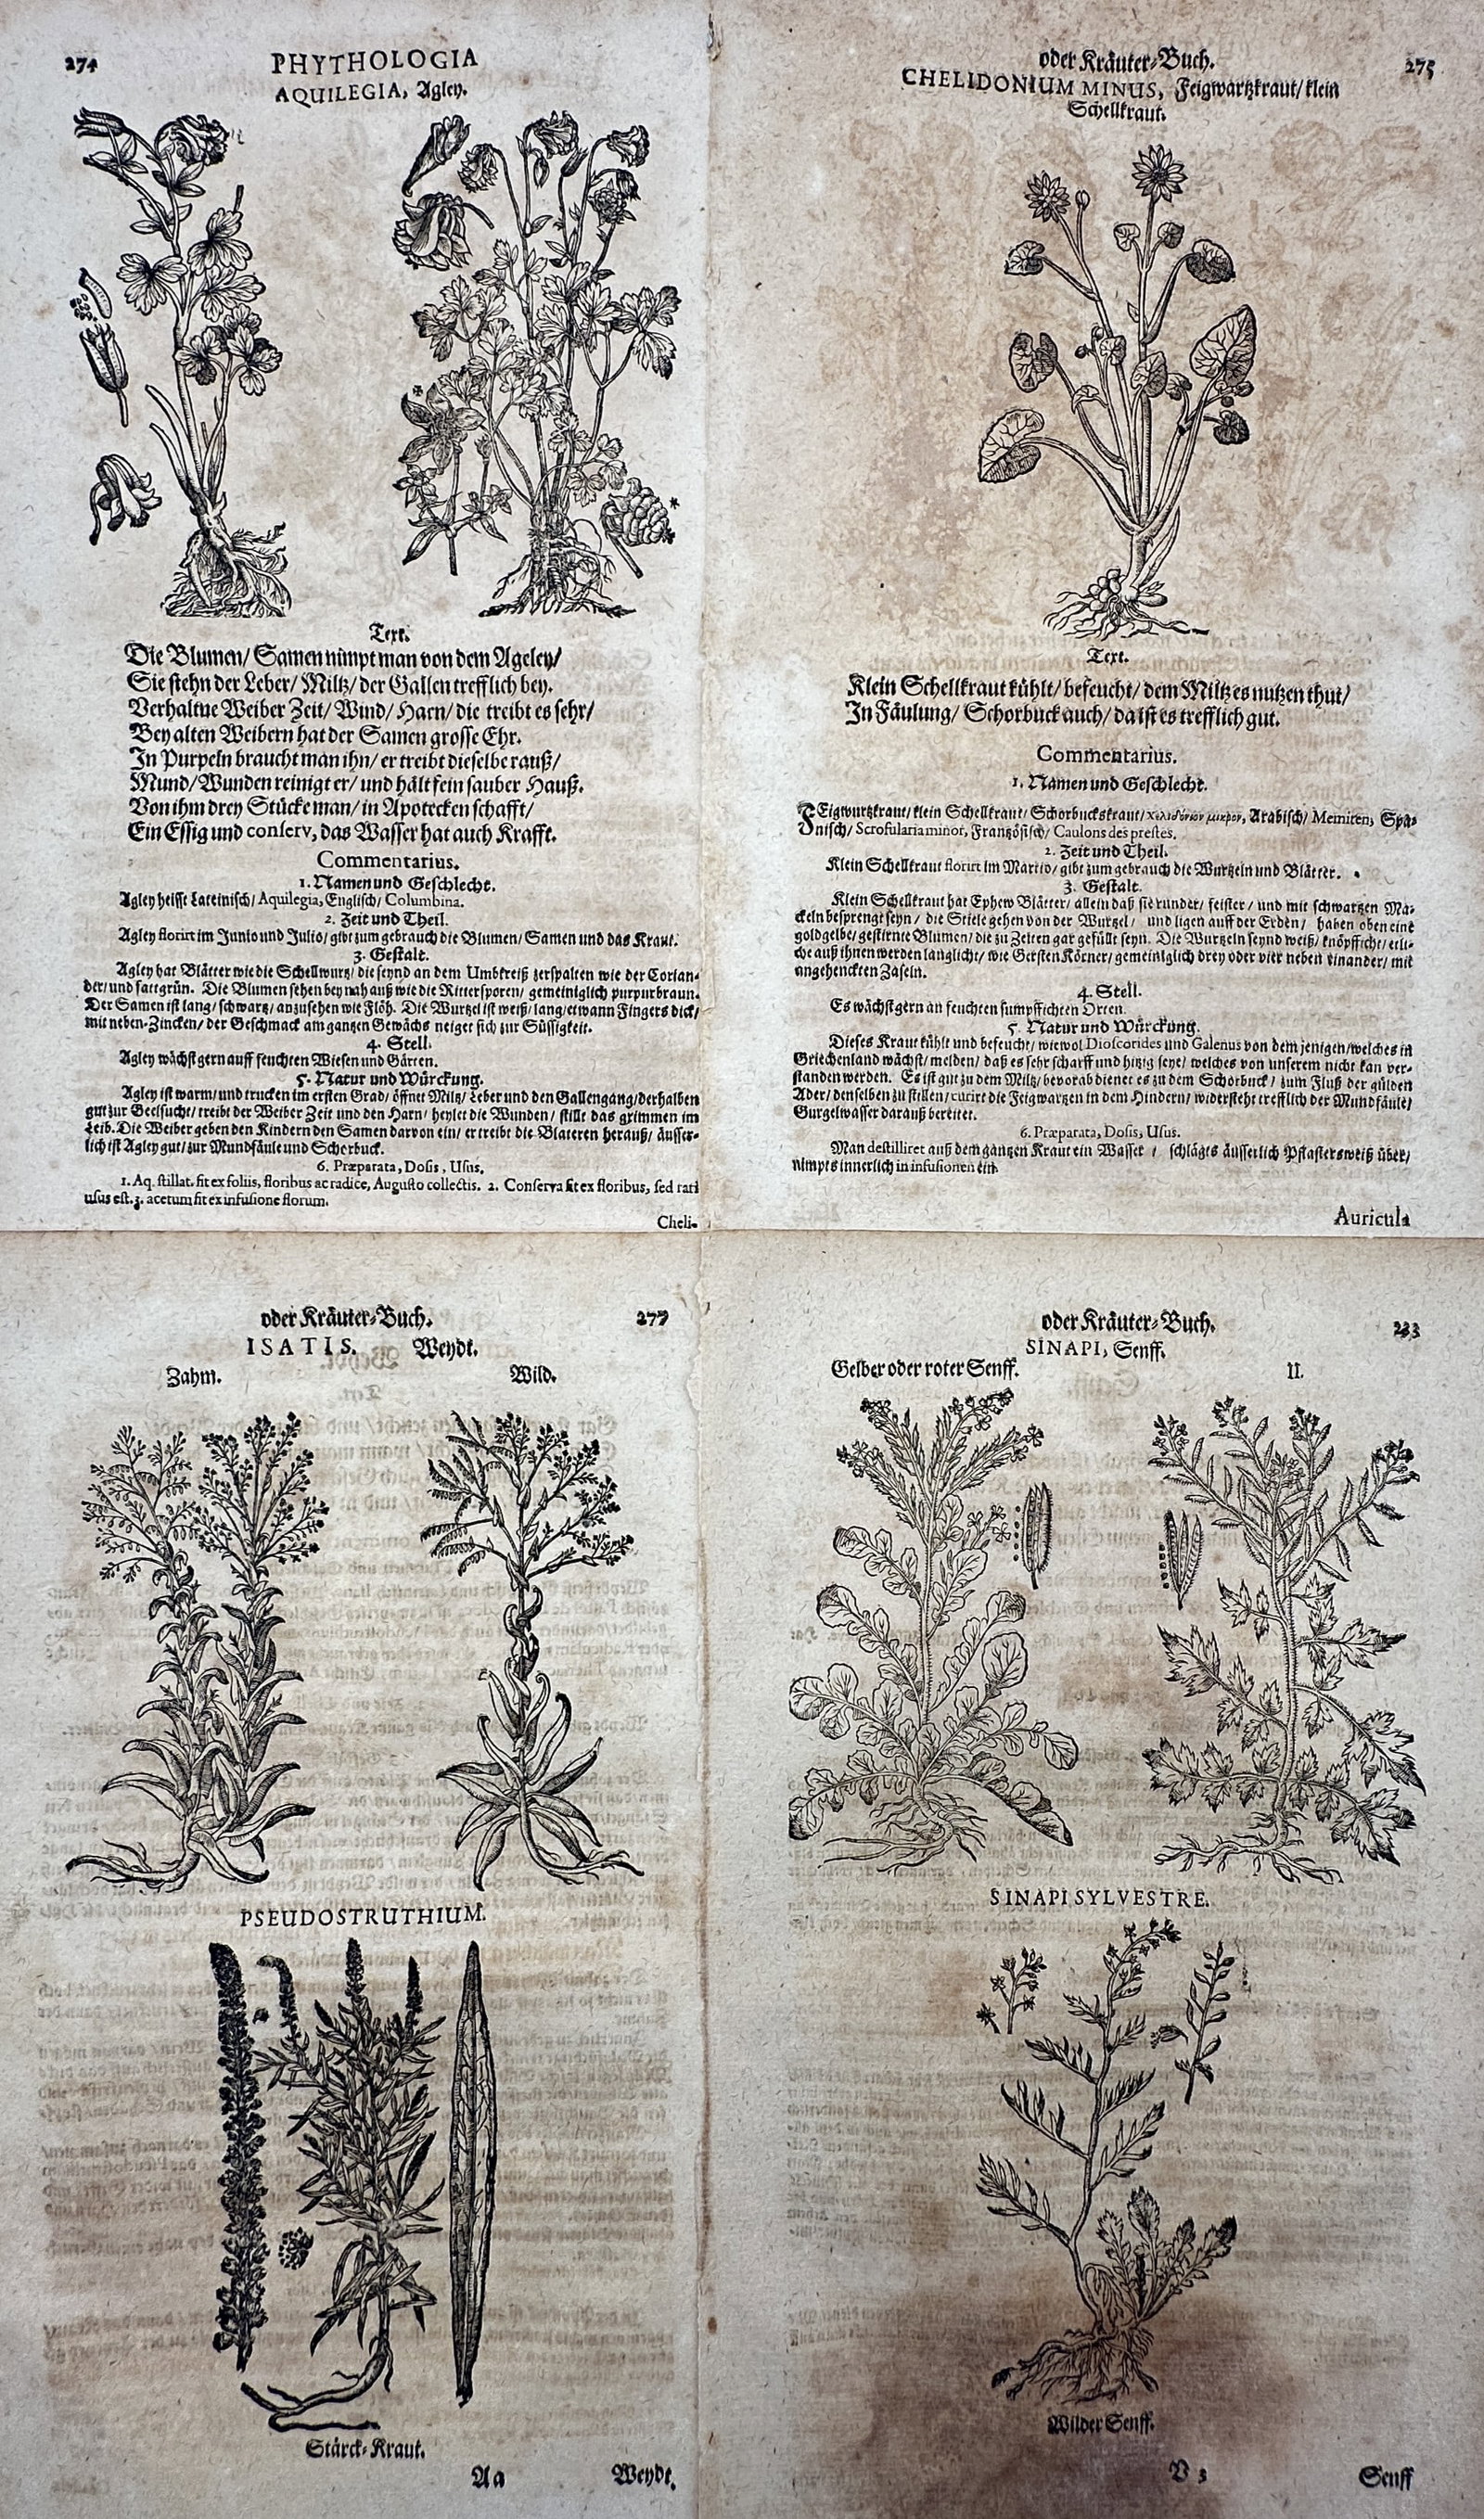 274
PHYTHOLOGIA
AQUILEGIA, Agley.
Text.
Die Blumen/ Samen nimpt man von dem Ageley/
Sie stehn der Leber/ Miltz/ der Gallen trefflich bey.
Verhaltne Weiber Zeit/ Wind/ Harn/ die treibt es sehr/
Bey alten Weibern hat der Samen grosse Ehr.
In Purpeln braucht man ihn/ er treibt dieselbe rauß/
Mund/ Wunden reinigt er/ und hält fein sauber Hauß.
Von ihm drey Stücke man/ in Apotecken schafft/
Ein Essig und conserv, das Wasser hat auch Krafft.
Commentarius.
1. Namen und Geschlecht.
Agley heisst Lateinisch/ Aquilegia, Englisch/ Columbina.
2. Zeit und Theil.
Agley florirt im Junio und Julio/ gibt zum gebrauch die Blumen/ Samen und das Kraut.
3. Gestalt.
Agley hat Blätter wie die Schellwurtz/ die seynd an dem Umbkreiß zerspalten wie der Corian-
der/ und sattgrün. Die Blumen sehen bey nah auß wie die Rittersporen/ gemeiniglich purpurbraun.
Der Samen ist lang/ schwartz/ anzusehen wie Flöh. Die Wurtzel ist weiß/ lang/ etwann Fingers dick/
mit neben-Zincken/ der Geschmack am gantzen Gewächs neiget sich zur Süssigkeit.
4. Stell.
Agley wächst gern auff feuchten Wiesen und Gärten.
5. Natur und Würckung.
Agley ist warm/ und trucken im ersten Grad/ öffnet Miltz/ Leber und den Gallengang/ derhalben
gut zur Geelsucht/ treibt der Weiber Zeit und den Harn/ heylet die Wunden/ stillt das grimmen im
Leib. Die Weiber geben den Kindern den Samen darvon ein/ er treibt die Blateren herauß/ äusser-
lich ist Agley gut/ zur Mundfäule und Schorbuck.
6. Præparata, Dosis, Usus.
1. Aq. stillat. fit ex foliis, floribus ac radice, Augusto collectis. 2. Conserva fit ex floribus, sed rari
usus est. 3. acetum fit ex infusione florum.
Cheli-
oder Kräuter-Buch.
275
CHELIDONIUM MINUS, Feigwartzkraut/ klein
Schellkraut.
Text.
Klein Schellkraut kühlt/ befeucht/ dem Miltz es nutzen thut/
In Fäulung/ Schorbuck auch/ da ist es trefflich gut.
Commentarius.
1. Namen und Geschlecht.
FEigwurtzkraut/ klein Schellkraut/ Schorbuckskraut/ χελιδόνιον μικρὸν, Arabisch/ Memiren, Spa-
nisch/ Scrofularia minor, Frantzösisch/ Caulons des prestes.
2. Zeit und Theil.
Klein Schellkraut florirt im Martio/ gibt zum gebrauch die Wurtzeln und Blätter.
3. Gestalt.
Klein Schellkraut hat Ephew Blätter/ allein daß sie runder/ feister/ und mit schwartzen Ma-
ckeln besprengt seyn/ die Stiele gehen von der Wurtzel/ und ligen auff der Erden/ haben oben eine
goldgelbe/ gestirnte Blumen/ die zu Zeiten gar gefüllt seyn. Die Wurtzeln seynd weiß/ knöpfficht/ etli-
che auß ihnen werden langlicht/ wie Gersten Körner/ gemeiniglich drey oder vier neben einander/ mit
angehenckten Zaseln.
4. Stell.
Es wächst gern an feuchten sumpffichten Orten.
5. Natur und Würckung.
Dieses Kraut kühlt und befeucht/ wiewol Dioscorides und Galenus von dem jenigen/ welches in
Griechenland wächst/ melden/ daß es sehr scharff und hitzig seye/ welches von unserem nicht kan ver-
standen werden. Es ist gut zu dem Miltz/ bevorab dienet es zu dem Schorbuck/ zum Fluß der gülden
Ader/ denselben zu stillen/ curirt die Feigwartzen in dem Hindern/ widersteht trefflich der Mundfäule/
Gurgelwasser darauß bereitet.
6. Præparata, Dosis, Usus.
Man destilliret auß dem gantzen Kraut ein Wasser/ schlägts äusserlich Pflastersweiß über/
nimpts innerlich in infusionen ein.
Auricula
oder Kräuter-Buch.
277
ISATIS. Weydt.
Zahm.
Wild.
PSEUDOSTRUTHIUM.
Stärck-Kraut.
Aa
Weydt.
oder Kräuter-Buch.
233
SINAPI, Senff.
Gelber oder roter Senff.
II.
SINAPI SYLVESTRE.
Wilder Senff.
V 3
Senff